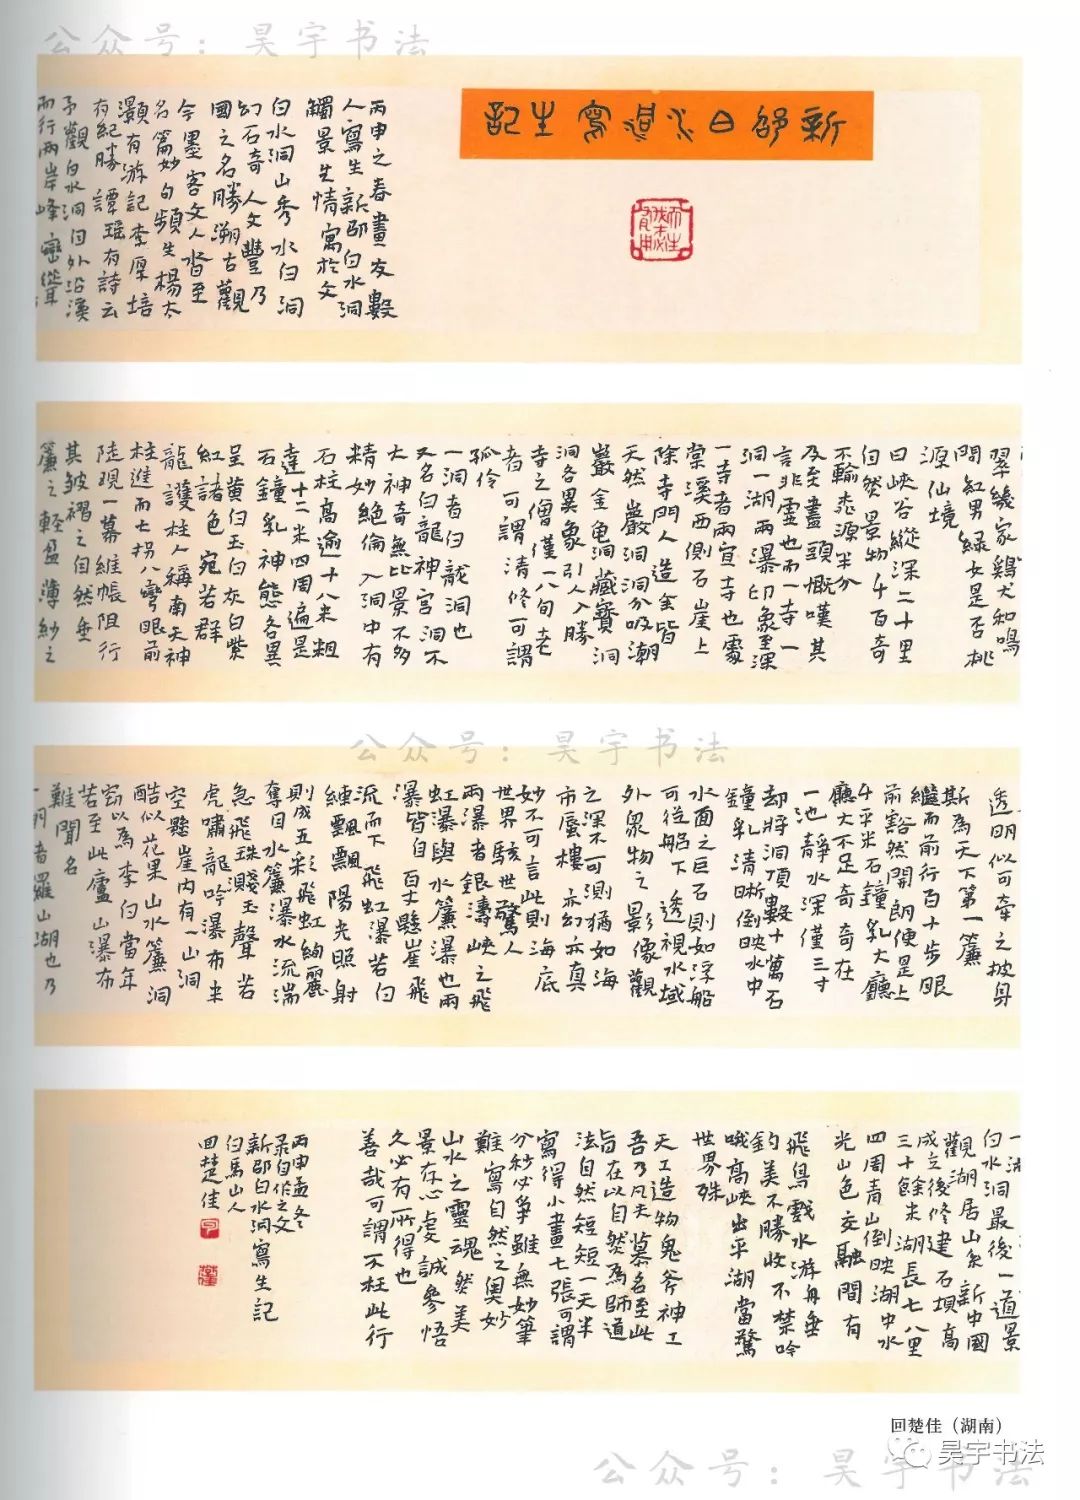 公众号：昊宇书法
新邵白水洞寫生記
丙申之春畫友數
人寫生新邵白水洞
觸景生情寓於文
白水洞山秀水白洞
幻石奇人文豐乃
國之名勝溯古觀
今墨客文人沓至
名篇妙句頻生楊大
灝有游記李厚培
有紀勝譚瑶有詩云
予觀白水洞自外沿溪
而行兩岸峰巒聳
翠幾家鷄犬和鳴
間紅男緑女是否桃
源仙境
曰峡谷縱深二十里
但然景物千百奇
不輸桃源半分
及至盡頭慨嘆其
言非虚也而一寺一
洞一湖兩瀑印象至深
一寺者兩宜寺也處
棠溪西側石崖上
除寺門人造全皆
天然巖洞洞分吸潮
巖金龟洞藏寶洞
洞各異象引人入勝
寺之僧僅一八旬老
者可謂清修可謂
孤伶
一洞者白龍洞也
又名白龍神宫洞不
大神奇無比景不多
精妙絶倫入洞中有
石柱高逾十八米粗
達十二米四周遍是
石鐘乳神態各異
呈黄白玉白灰白紫
紅諸色宛若群
龍護柱人稱南天神
柱進而七拐八彎眼前
陡現一幕維帳阻行
其皺褶之自然垂
簾之輕盈薄紗之
透明似可牵之披身
斯為天下第一簾
繼而前行百十步眼
前豁然開朗便是上
千平米石鐘乳大廳
廳大不足奇奇在
一池靜水深僅三寸
却將洞頂數十萬石
鐘乳清晰倒映水中
水面之巨石則如浮船
可從船下透視水域
外象物之影像觀
之深不可測猶如海
市蜃樓亦幻亦真
妙不可言此則海底
世界駭世驚人
兩瀑者銀濤峡之飛
虹瀑與水簾瀑也兩
瀑皆自百丈懸崖飛
流而下飛虹瀑若白
練飄飄陽光照射
則成五彩飛虹絢麗
奪目水簾瀑水流湍
急飛珠濺玉聲若
虎嘯龍吟瀑布半
空懸崖内有一山洞
酷似花果山水簾洞
窃以為李白當年
若至此廬山瀑布
難聞名
一湖者羅山湖也乃
白水洞最後一道景
觀湖居山系新中國
成立後修建石埧高
三十餘米湖長七八里
四周青山倒映湖中水
光山色交融間有
飛鳥戲水游舟垂
釣美不勝收不禁吟
哦高峡出平湖當驚
世界殊
天工造物鬼斧神工
吾乃凡夫慕名至此
旨在以自然為師道
法自然短短一天半
寫得小畫七張可謂
分秒必爭雖無妙筆
難寫自然之奥妙
山水之靈魂然美
景存心虔誠參悟
久必有所得也
善哉可謂不枉此行
丙申孟冬
录自作之文
新邵白水洞寫生記
白馬山人
回楚佳
公众号：昊宇书法
回楚佳（湖南）
昊宇书法
公众号：昊宇书法